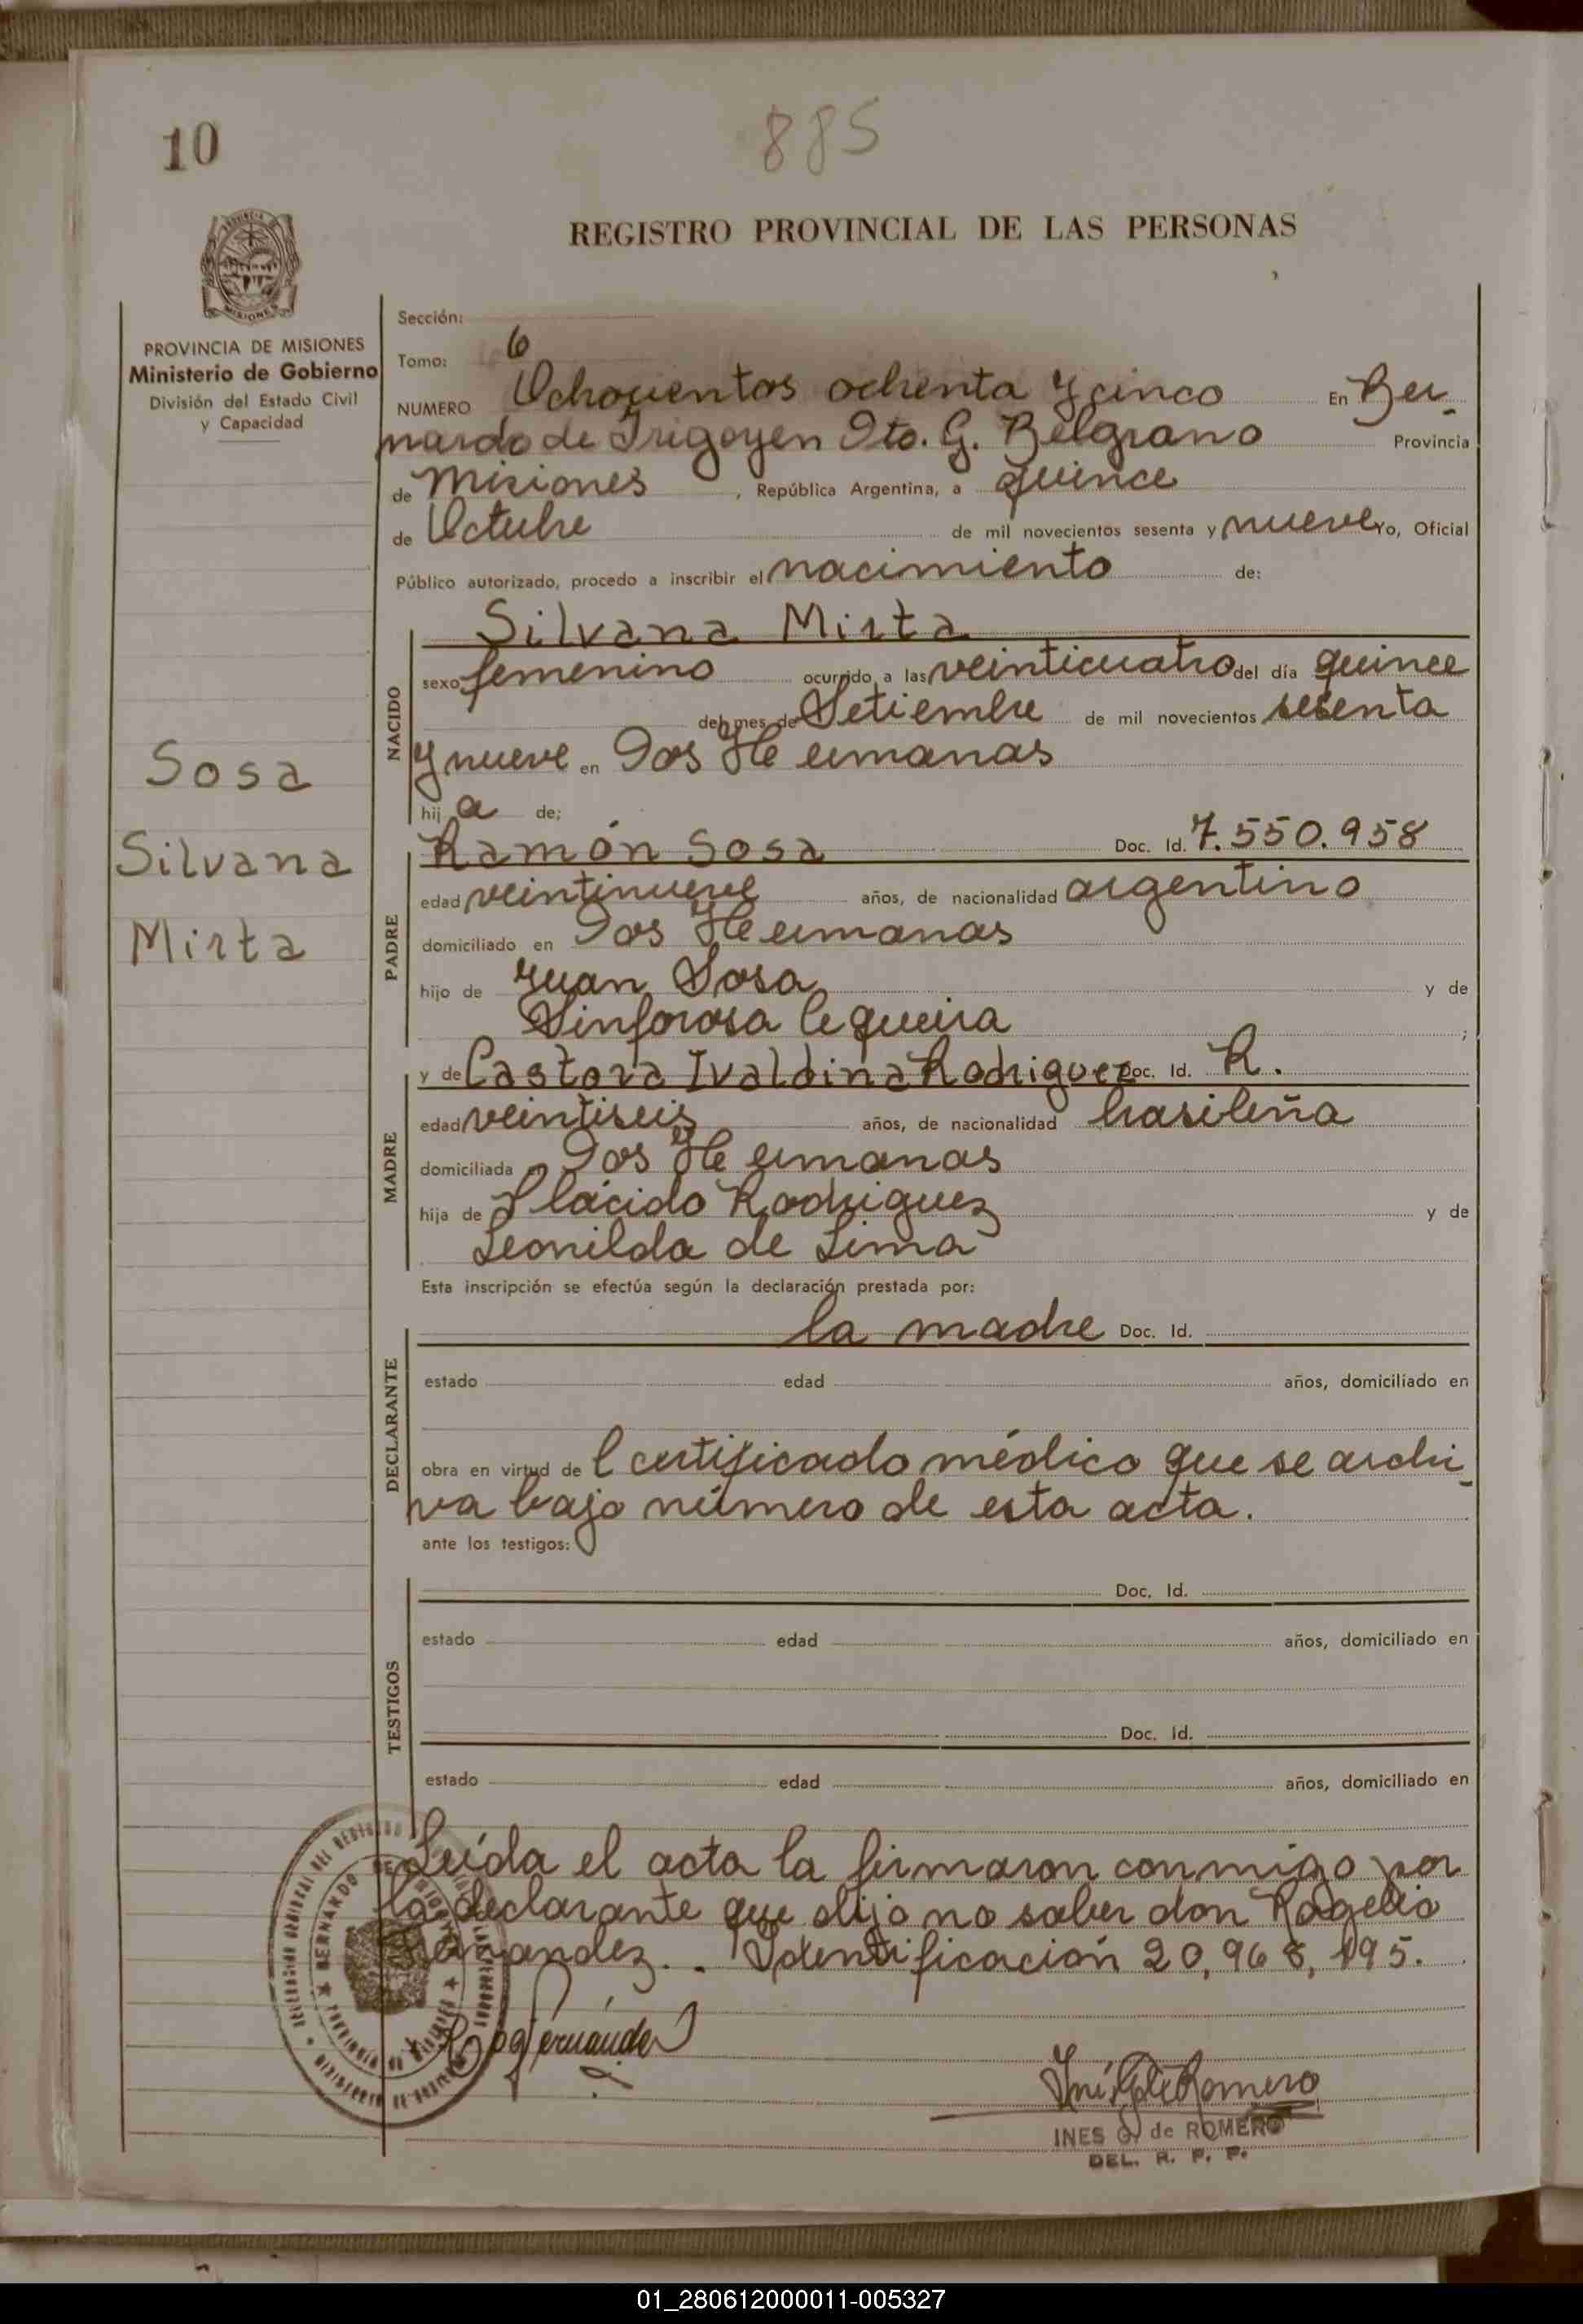 10
885
REGISTRO PROVINCIAL DE LAS PERSONAS
PROVINCIA DE MISIONES
Ministerio de Gobierno
División del Estado Civil
y Capacidad
Sosa
Silvana
Mirta
Sección:
Tomo: 6
NUMERO Ochocientos ochenta y cinco En Ber-
nardo de Irigoyen Dto. G. Belgrano Provincia
de Misiones, República Argentina, a quince
de Octubre de mil novecientos sesenta y nueve Yo, Oficial
Público autorizado, procedo a inscribir el nacimiento de:
NACIDO
Silvana Mirta
sexo femenino ocurrido a las veinticuatro del día quince
del mes de Setiembre de mil novecientos sesenta
y nueve en Dos Hermanas
hija de:
PADRE
Ramón Sosa Doc. Id. 7.550.958
edad veintinueve años, de nacionalidad argentino
domiciliado en Dos Hermanas
hijo de Juan Sosa y de
Sinforosa Cequeira;
MADRE
y de Castora Ivaldina Rodriguez Doc. Id. R.
edad veintiseis años, de nacionalidad brasileña
domiciliada en Dos Hermanas
hija de Plácido Rodriguez y de
Leonilda de Lima
Esta inscripción se efectúa según la declaración prestada por:
DECLARANTE
la madre Doc. Id.
estado edad años, domiciliado en
obra en virtud del certificado médico que se archi-
va bajo número de esta acta.
ante los testigos:
TESTIGOS
Doc. Id.
estado edad años, domiciliado en
Doc. Id.
estado edad años, domiciliado en
Leída el acta la firmaron conmigo por
la declarante que dijo no saber don Rogelio
Fernandez.. Identificación 20,968,195.
Rog Fernández
Inés G. de Romero
INES G. de ROMERO
DEL. R. P. P.
01_280612000011-005327